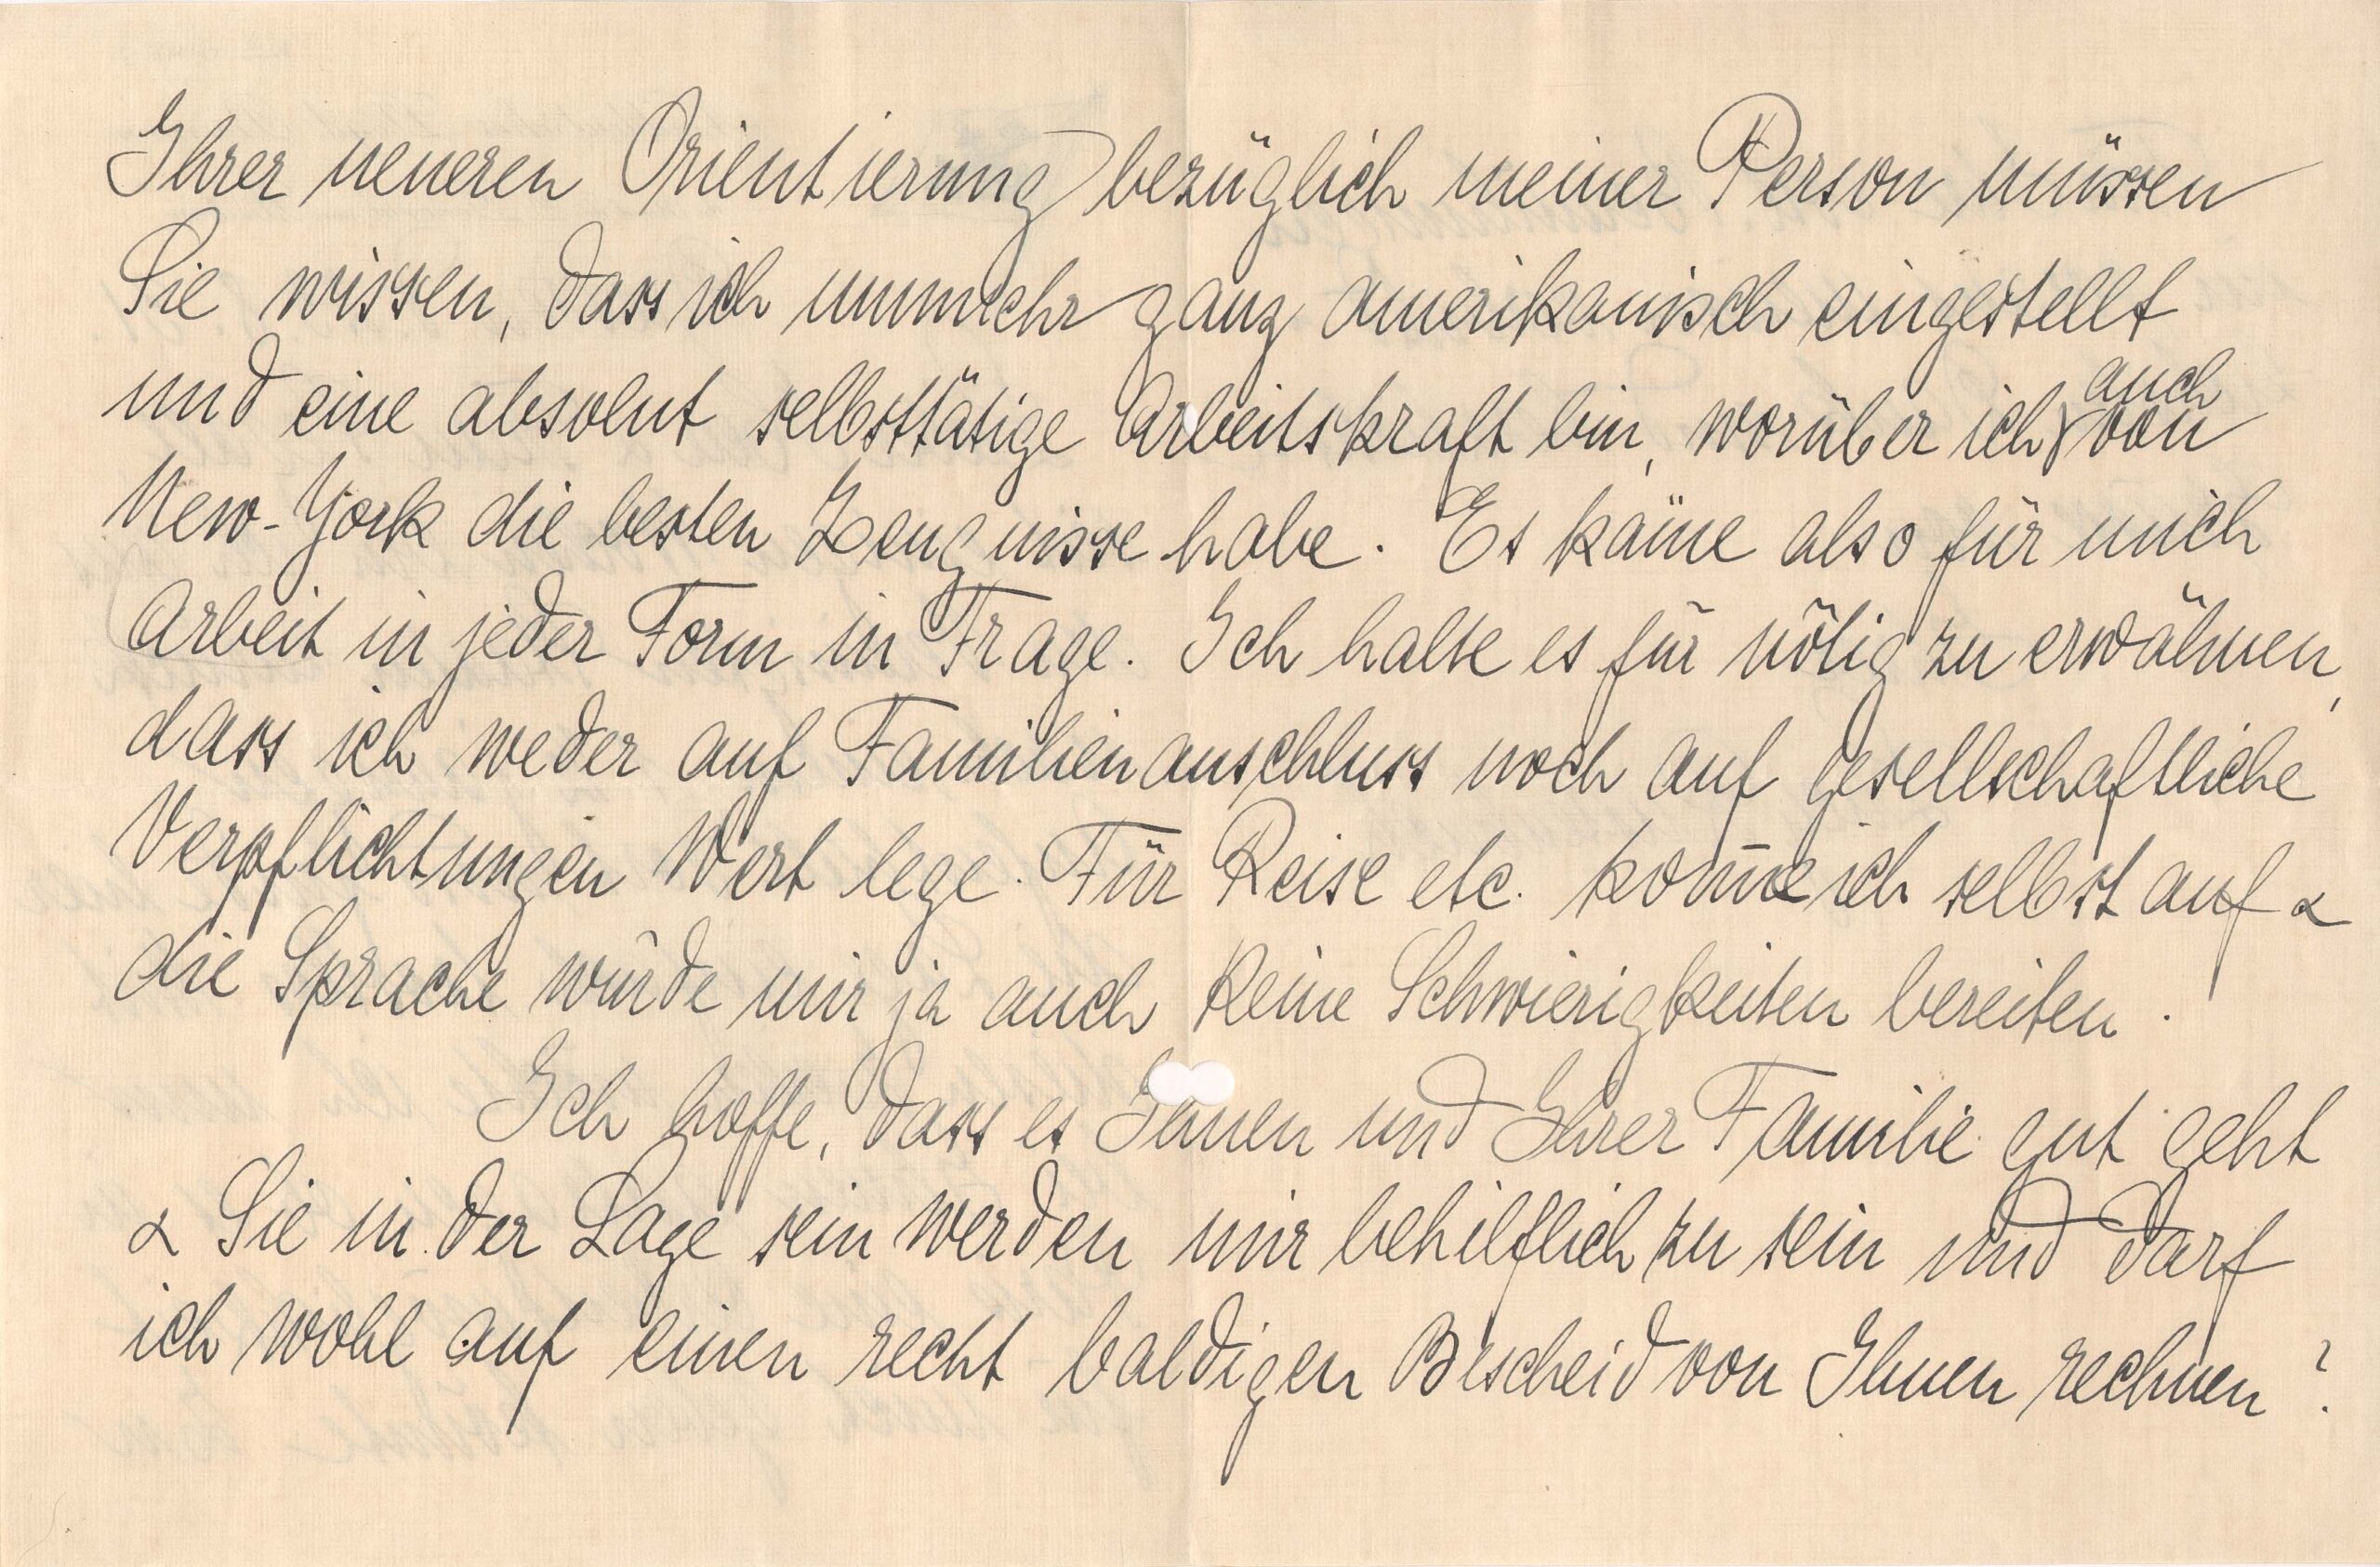 Ihrer neueren Orientierung bezüglich meiner Person müssen
Sie wissen, dass ich nunmehr ganz amerikanisch eingestellt
und eine absolut selbsttätige Arbeitskraft bin, worüber ich auch von
New-York die besten Zeugnisse habe. Es käme also für mich
Arbeit in jeder Form in Frage. Ich halte es für nötig zu erwähnen,
dass ich weder auf Familienanschluss noch auf gesellschaftliche
Verpflichtungen Wert lege. Für Reise etc. kom̅e ich selbst auf &
die Sprache würde mir ja auch keine Schwierigkeiten bereiten.
Ich hoffe, dass es Ihnen und Ihrer Familie gut geht
& Sie in der Lage sein werden mir behilflich zu sein und darf
ich wohl auf einen recht baldigen Bescheid von Ihnen rechnen?